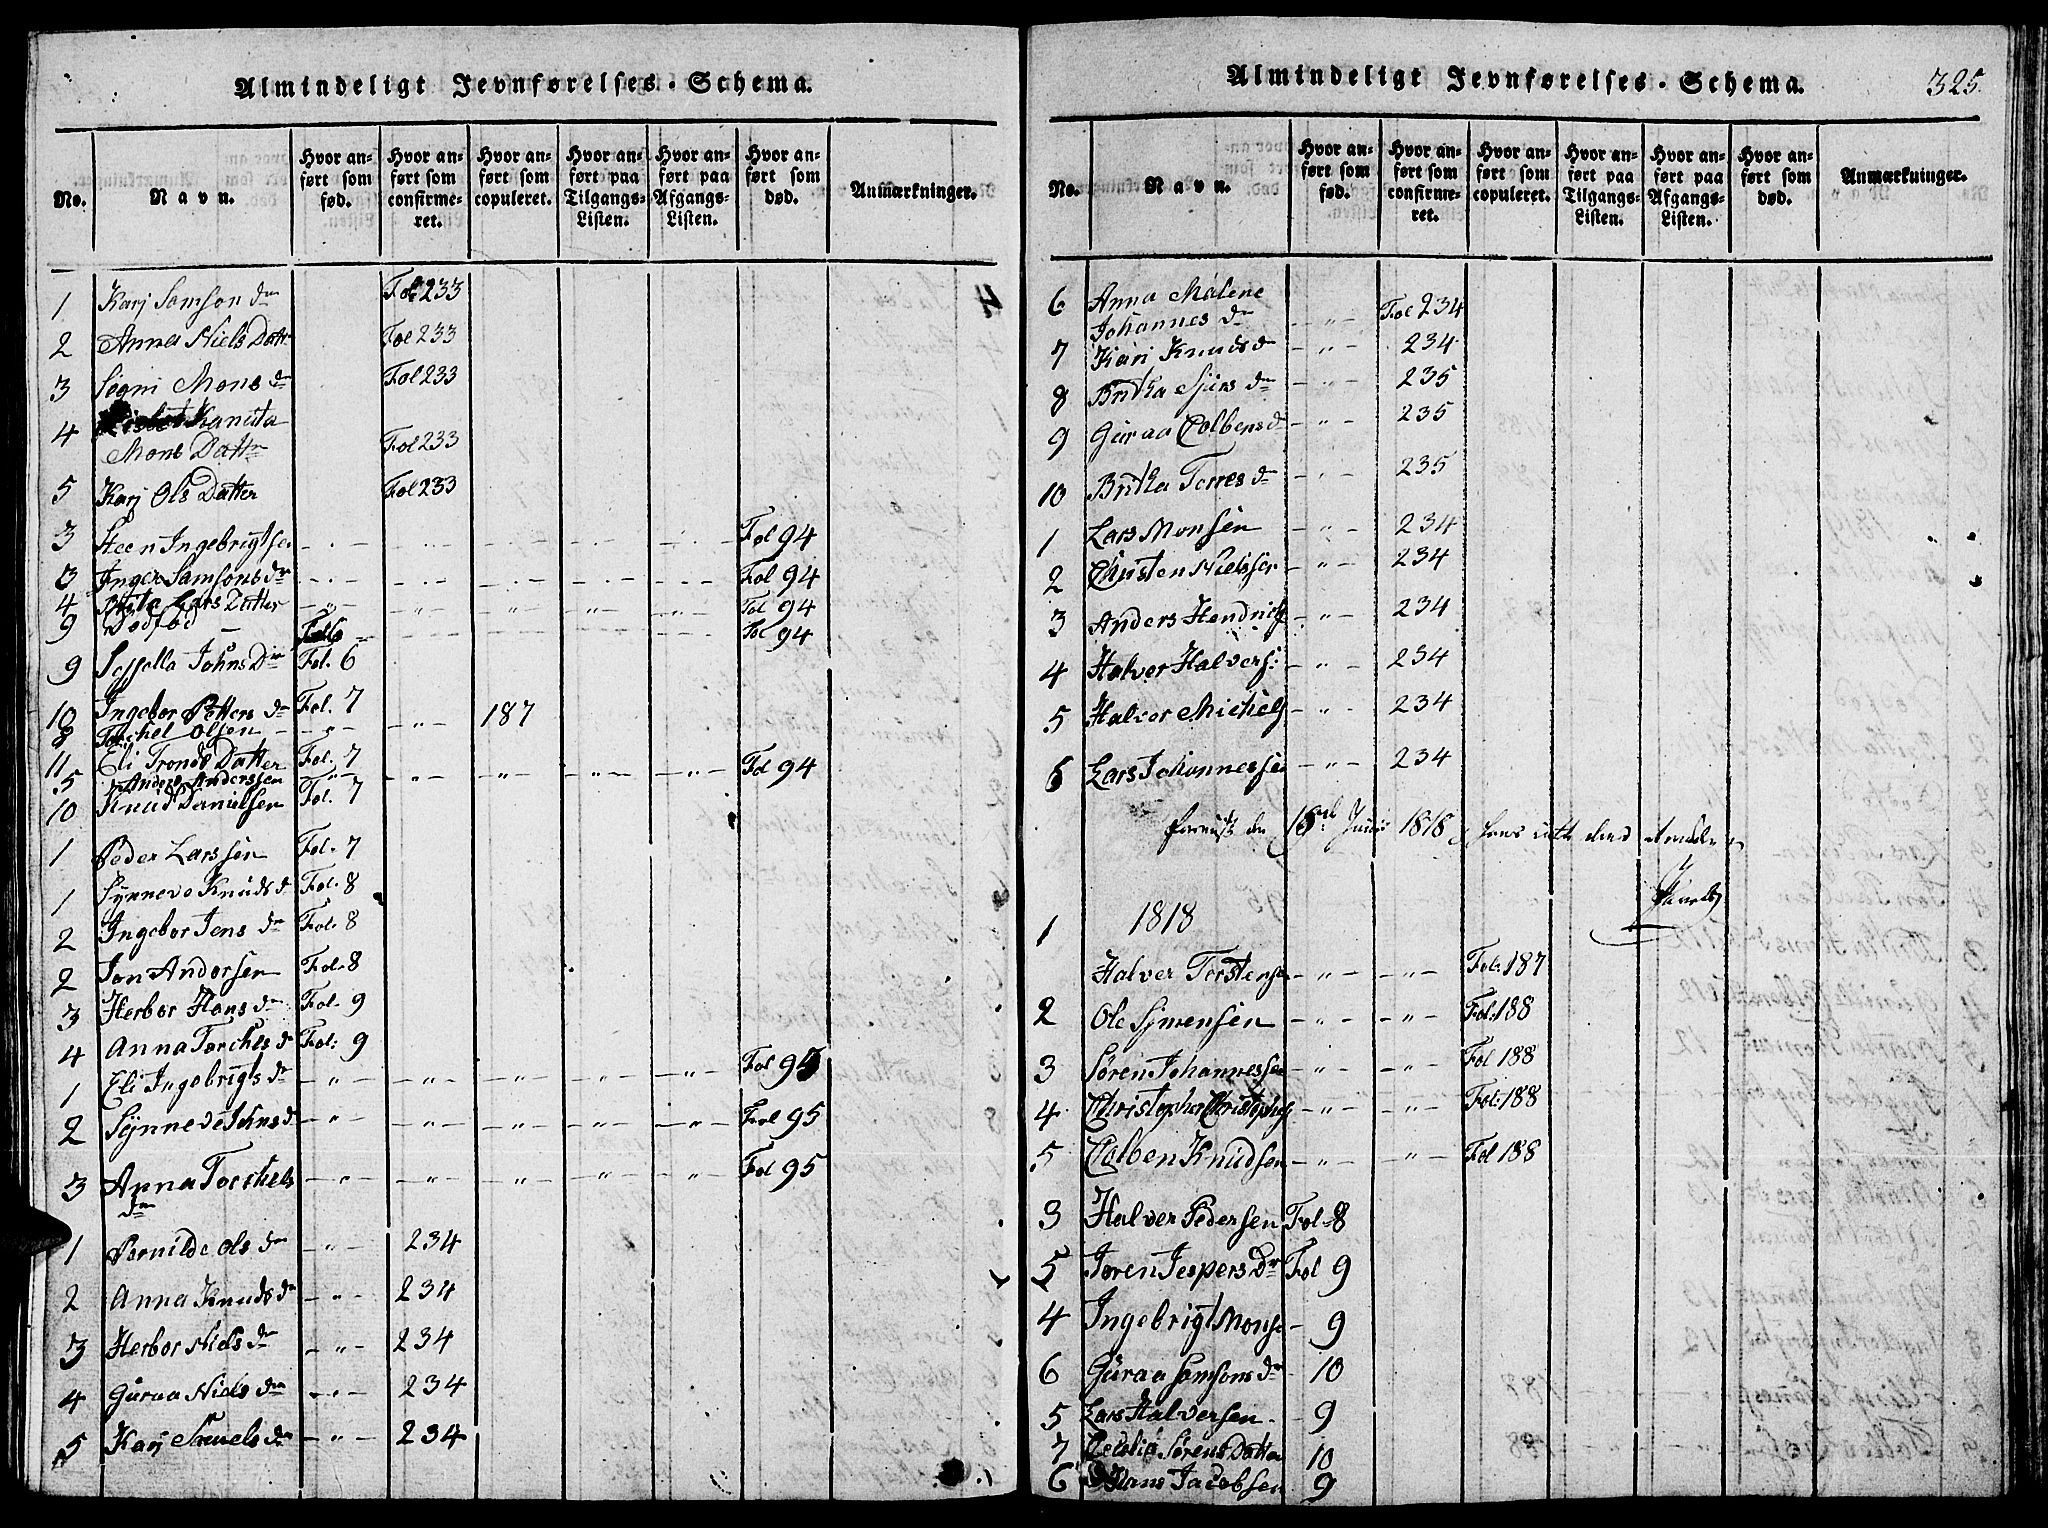 Almindeligt Jevnførelses-Schema.
No. Navn. Hvor anført som fød. Hvor anført som confirmeret. Hvor anført som copuleret. Hvor anført paa Tilgangs-Listen. Hvor anført paa Afgangs-Listen. Hvor anført som død. Anmærkninger.
1 Karj Samson dr Fol 233
2 Anna Niels Dattr Fol 233
3 Signi Mons dr Fol 233
4 Kanuta
Mons Dattr Fol 233
5 Karj Ols Datter Fol 233
3 Steen Ingebrigtsen Fol 94
3 Inger Samsons dr Fol 94
4 Lars Datter - „ - - „ - - „ - - „ - Fol 94
9 Dødfød Fol 6 Fol 94
9 Johns Dr Fol. 6
10 Ingebor Petters dr Fol. 7
8 Torchel Olsen - „ - - „ - 187
11 Eli Tronds Datter Fol. 7
5 Anders Anderssen - „ - - „ - - „ - - „ - - „ - Fol 94
10 Knud Danielsen Fol. 7
1 Peder Larssen Fol. 7
1 Synneve Knuds d Fol. 8
2 Ingebor Jens dr Fol. 8
2 Jon Andersen Fol. 8
3 Herbor Hans dr Fol. 9
4 Anna Torchels d Fol: 9
1 Eli Ingebrigts dr - „ - - „ - - „ - - „ - - „ - Fol 95
2 Synneve Johns d - „ - - „ - - „ - - „ - - „ - Fol 95
3 Anna Torchels
dr - „ - - „ - - „ - - „ - - „ - Fol 95
1 Pernilde Ols dr - „ - 234
2 Anna Knuds dr - „ - 234
3 Herbor Niels dr - „ - 234
4 Guraa Niels dr - „ - 234
5 Karj Samuels dr - „ - 234
Almindeligt Jevnførelses-Schema. 325.
No. Navn. Hvor anført som fød. Hvor anført som confirmeret. Hvor anført som copuleret. Hvor anført paa Tilgangs-Listen. Hvor anført paa Afgangs-Listen. Hvor anført som død. Anmærkninger.
6 Anna Malene
Johannes dr - „ - Fol 234
7 Kari Knuds d - „ - 234
8 Britha Sjurs dr - „ - 235
9 Guraa Colbens d - „ - 235
10 Britha Torres dr - „ - 235
1 Lars Monsen - „ - 234
2 Christen Nielssen - „ - 234
3 Anders Hendrichs - „ - 234
4 Halver Halvers: - „ - 234
5 Halver Michels - „ - 234
6 Lars Johannessen - „ - 234
den 15de Junii 1818
1 1818
Halver Torstensen - „ - - „ - Fol: 187
2 Ole Symensen - „ - - „ - Fol: 188
3 Søren Johannessen - „ - - „ - Fol 188
4 Christopher Christophs - „ - - „ - Fol: 188
5 Colben Knudsen - „ - - „ - Fol 188
3 Halver Pedersen Fol. 8
5 Joren Jespers Dr Fol 9
4 Ingebrigt Monse - 9
6 Guraa Samsons dr 10
5 Lars Halversen - 9
7 Cecelia Sørens Datter 10
6 Hans Jacobsen 9